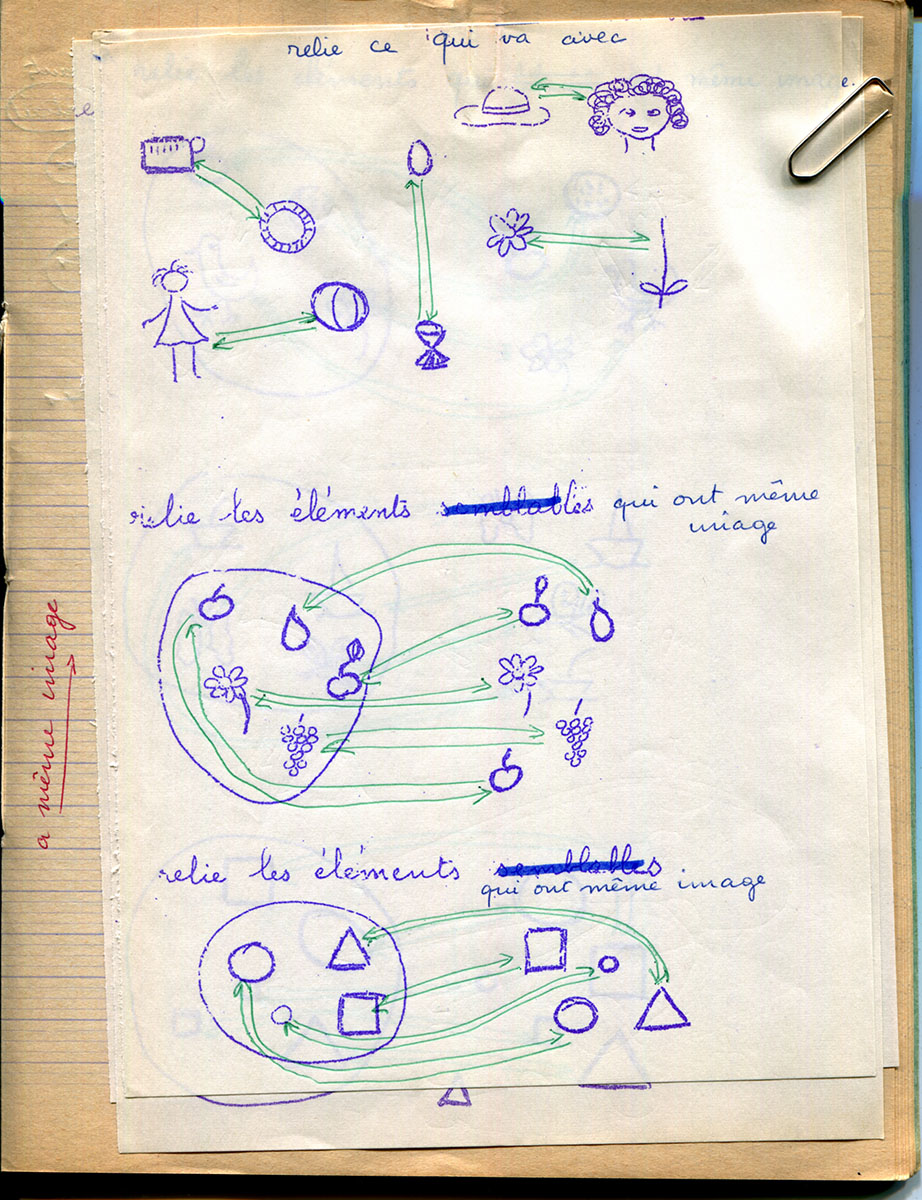 relie ce qui va avec
e.
e
relie les éléments semblables qui ont même
image
a même image
relie les éléments semblables
qui ont même image